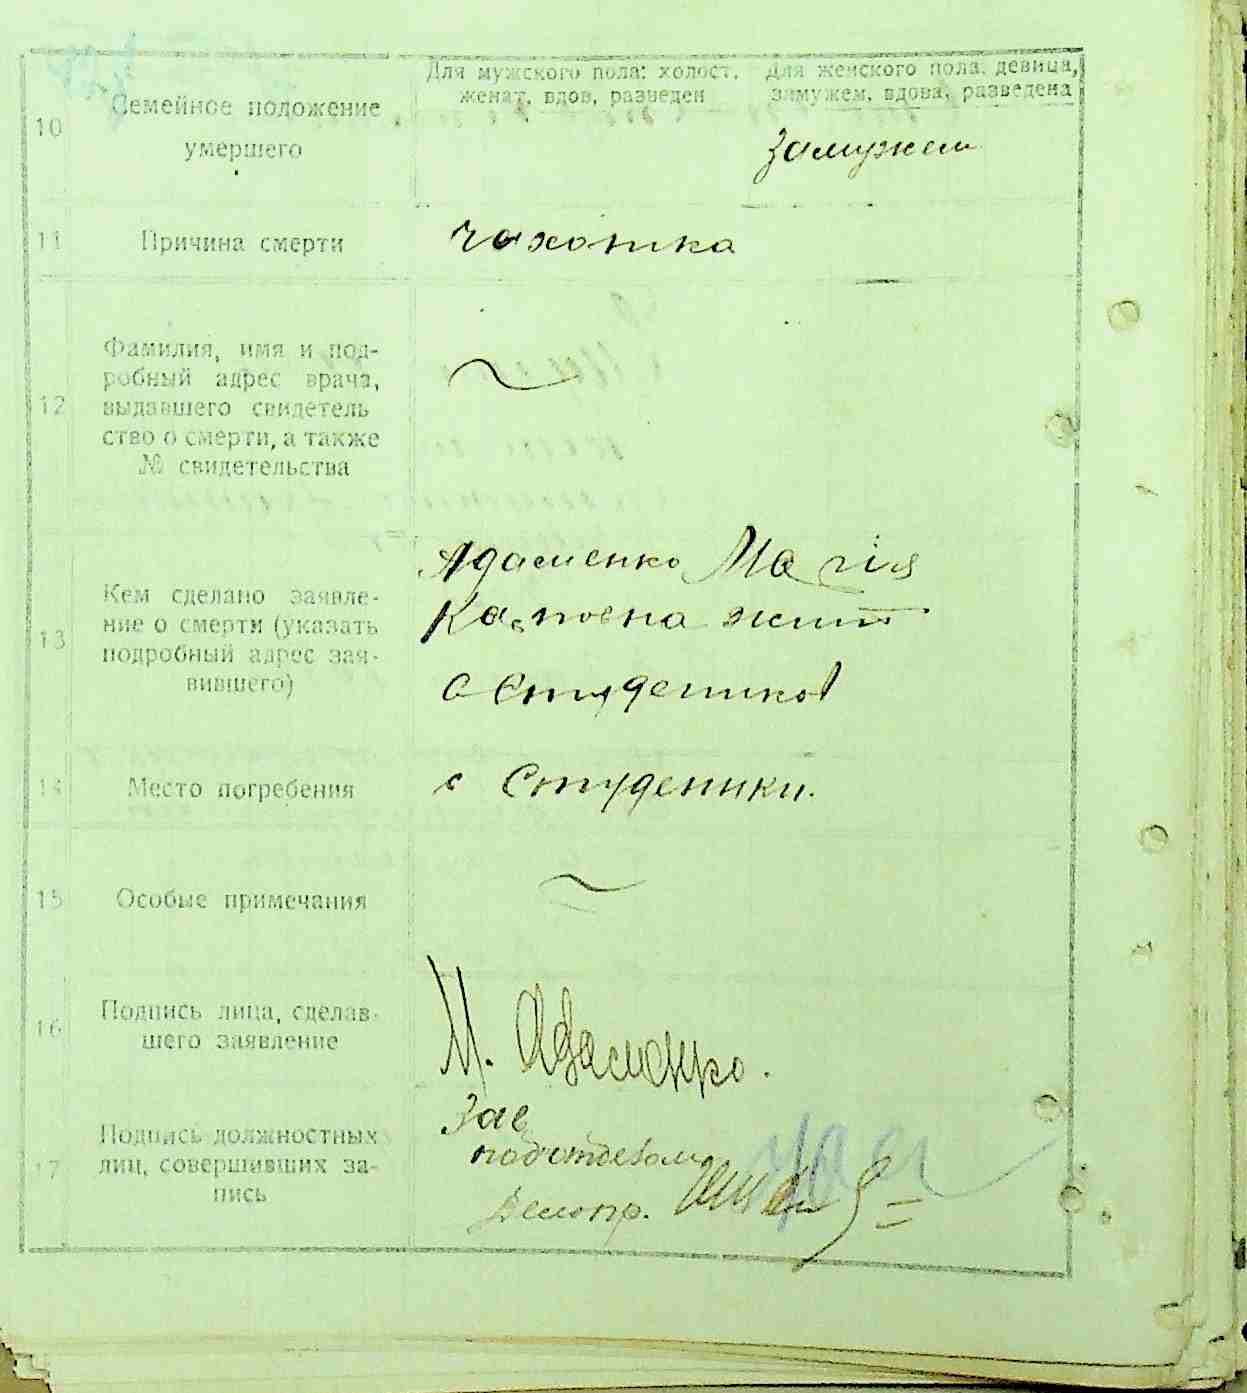 Для мужского пола: холост, женат, вдов, разведен
Для женского пола: девица, замужем, вдова, разведена
10 Семейное положение
умершего
замужем
11 Причина смерти
чахотка
12 Фамилия, имя и под-
робный адрес врача,
выдавшего свидетель
ство о смерти, а также
№ свидетельства
~
13 Кем сделано заявле-
ние о смерти (указать
подробный адрес зая-
вившего)
Адаменко Марія
жит
с Студеников
14 Место погребения
с Студеники.
15 Особые примечания
~
16 Подпись лица, сделав-
шего заявление
М. Адаменко.
17 Подпись должностных
лиц, совершивших за-
пись
Зав
подотделом
Делопр.